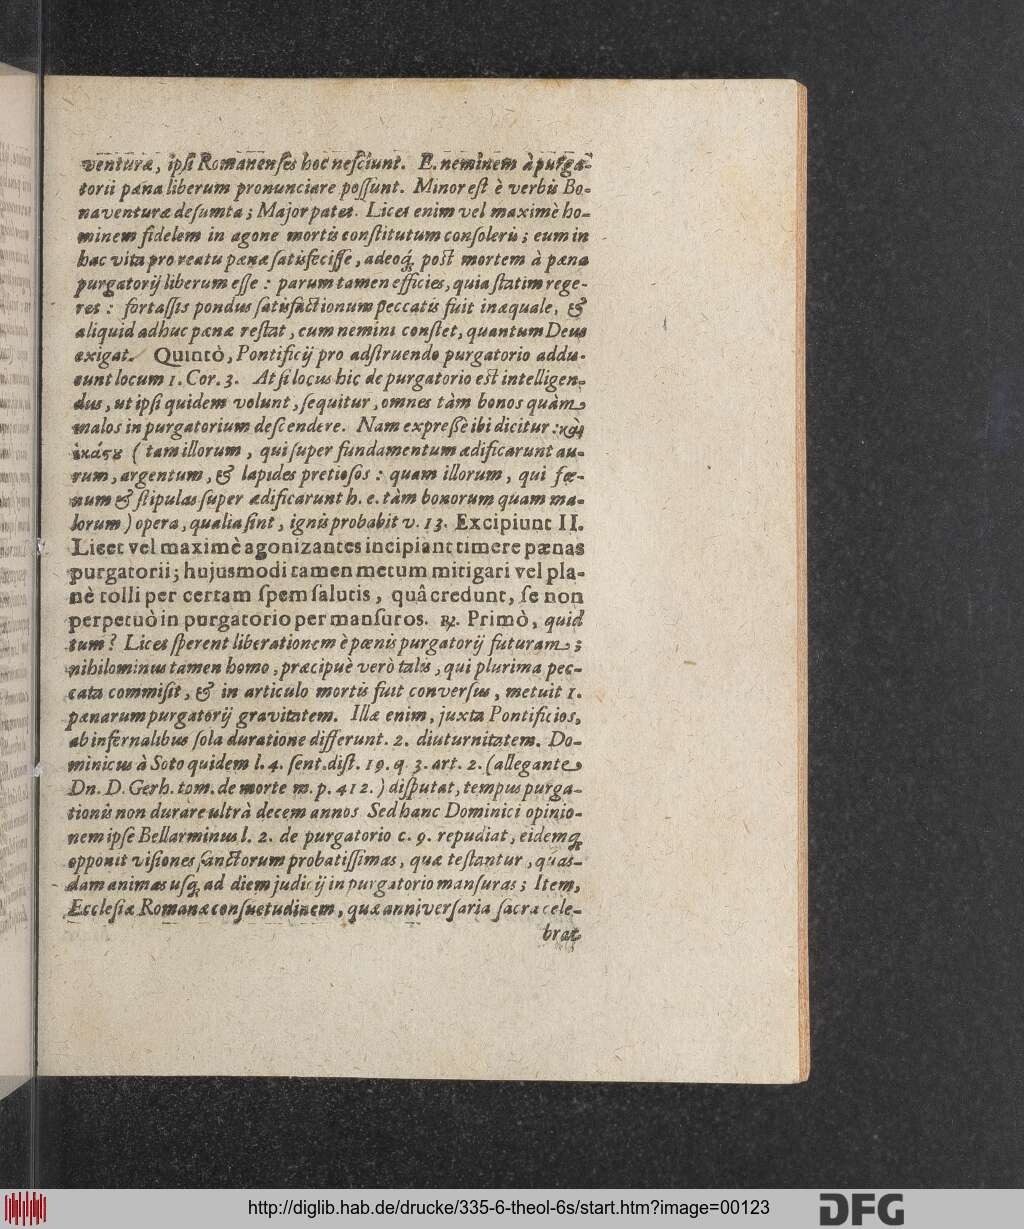 venturæ, ipſi Romanenſes hoc neſciunt. E. neminem à purga-
torii pæna liberum pronunciare poſſunt. Minor eſt è verbis Bo-
naventuræ deſumta; Major patet. Licet enim vel maximè ho-
minem fidelem in agone mortis conſtitutum conſoleris; eum in
hac vita pro reatu pænæ ſatisfeciſſe, adeoq́; poſt mortem à pæna
purgatorij liberum eſſe: parum tamen efficies, quia ſtatim rege-
ret: fortaſſis pondus ſatisfactionum peccatis fuit inæquale, &
aliquid adhuc pænæ reſtat, cum nemini conſtet, quantum Deus
exigat. Quintò, Pontificij pro adſtruendo purgatorio addu-
cunt locum 1. Cor. 3. At ſi locus hic de purgatorio eſt intelligen-
dus, ut ipſi quidem volunt, ſequitur, omnes tàm bonos quàm
malos in purgatorium deſcendere. Nam expreſſe ibi dicitur: καὶ
ἑκάςȣ (tam illorum, qui ſuper fundamentum ædificarunt au-
rum, argentum, & lapides pretioſos: quam illorum, qui fæ-
num & ſtipulas ſuper ædificarunt h. e. tàm bonorum quam ma-
lorum) opera, qualia ſint, ignis probabit v. 13. Excipiunt II.
Licet vel maximè agonizantes incipiant timere pænas
purgatorii; hujusmodi tamen metum mitigari vel pla-
nè tolli per certam ſpem ſalutis, quâ credunt, ſe non
perpetuò in purgatorio per manſuros. ℞. Primò, quid
tum? Licet ſperent liberationem è pænis purgatorij futuram;
nihilominus tamen homo, præcipuè verò talis, qui plurima pec-
cata commiſit, & in articulo mortis fuit converſus, metuit 1.
pænarum purgatorij gravitatem. Illæ enim, juxta Pontificios,
ab infernalibus ſola duratione differunt. 2. diuturnitatem. Do-
minicus à Soto quidem l. 4. ſent. diſt. 19. q. 3. art. 2. (allegante
Dn. D. Gerh. tom. de morte m. p. 412.) diſputat, tempus purga-
tionis non durare ultrà decem annos Sed hanc Dominici opinio-
nem ipſe Bellarminus l. 2. de purgatorio c. 9. repudiat, eidemq́;
opponit viſiones ſanctorum probatiſſimas, quæ teſtantur, quas-
dam animas uſq́; ad diem judicij in purgatorio manſuras; Item,
Eccleſiæ Romanæ conſuetudinem, quæ anniverſaria ſacra cele-
brat
http://diglib.hab.de/drucke/335-6-theol-6s/start.htm?image=00123
DFG